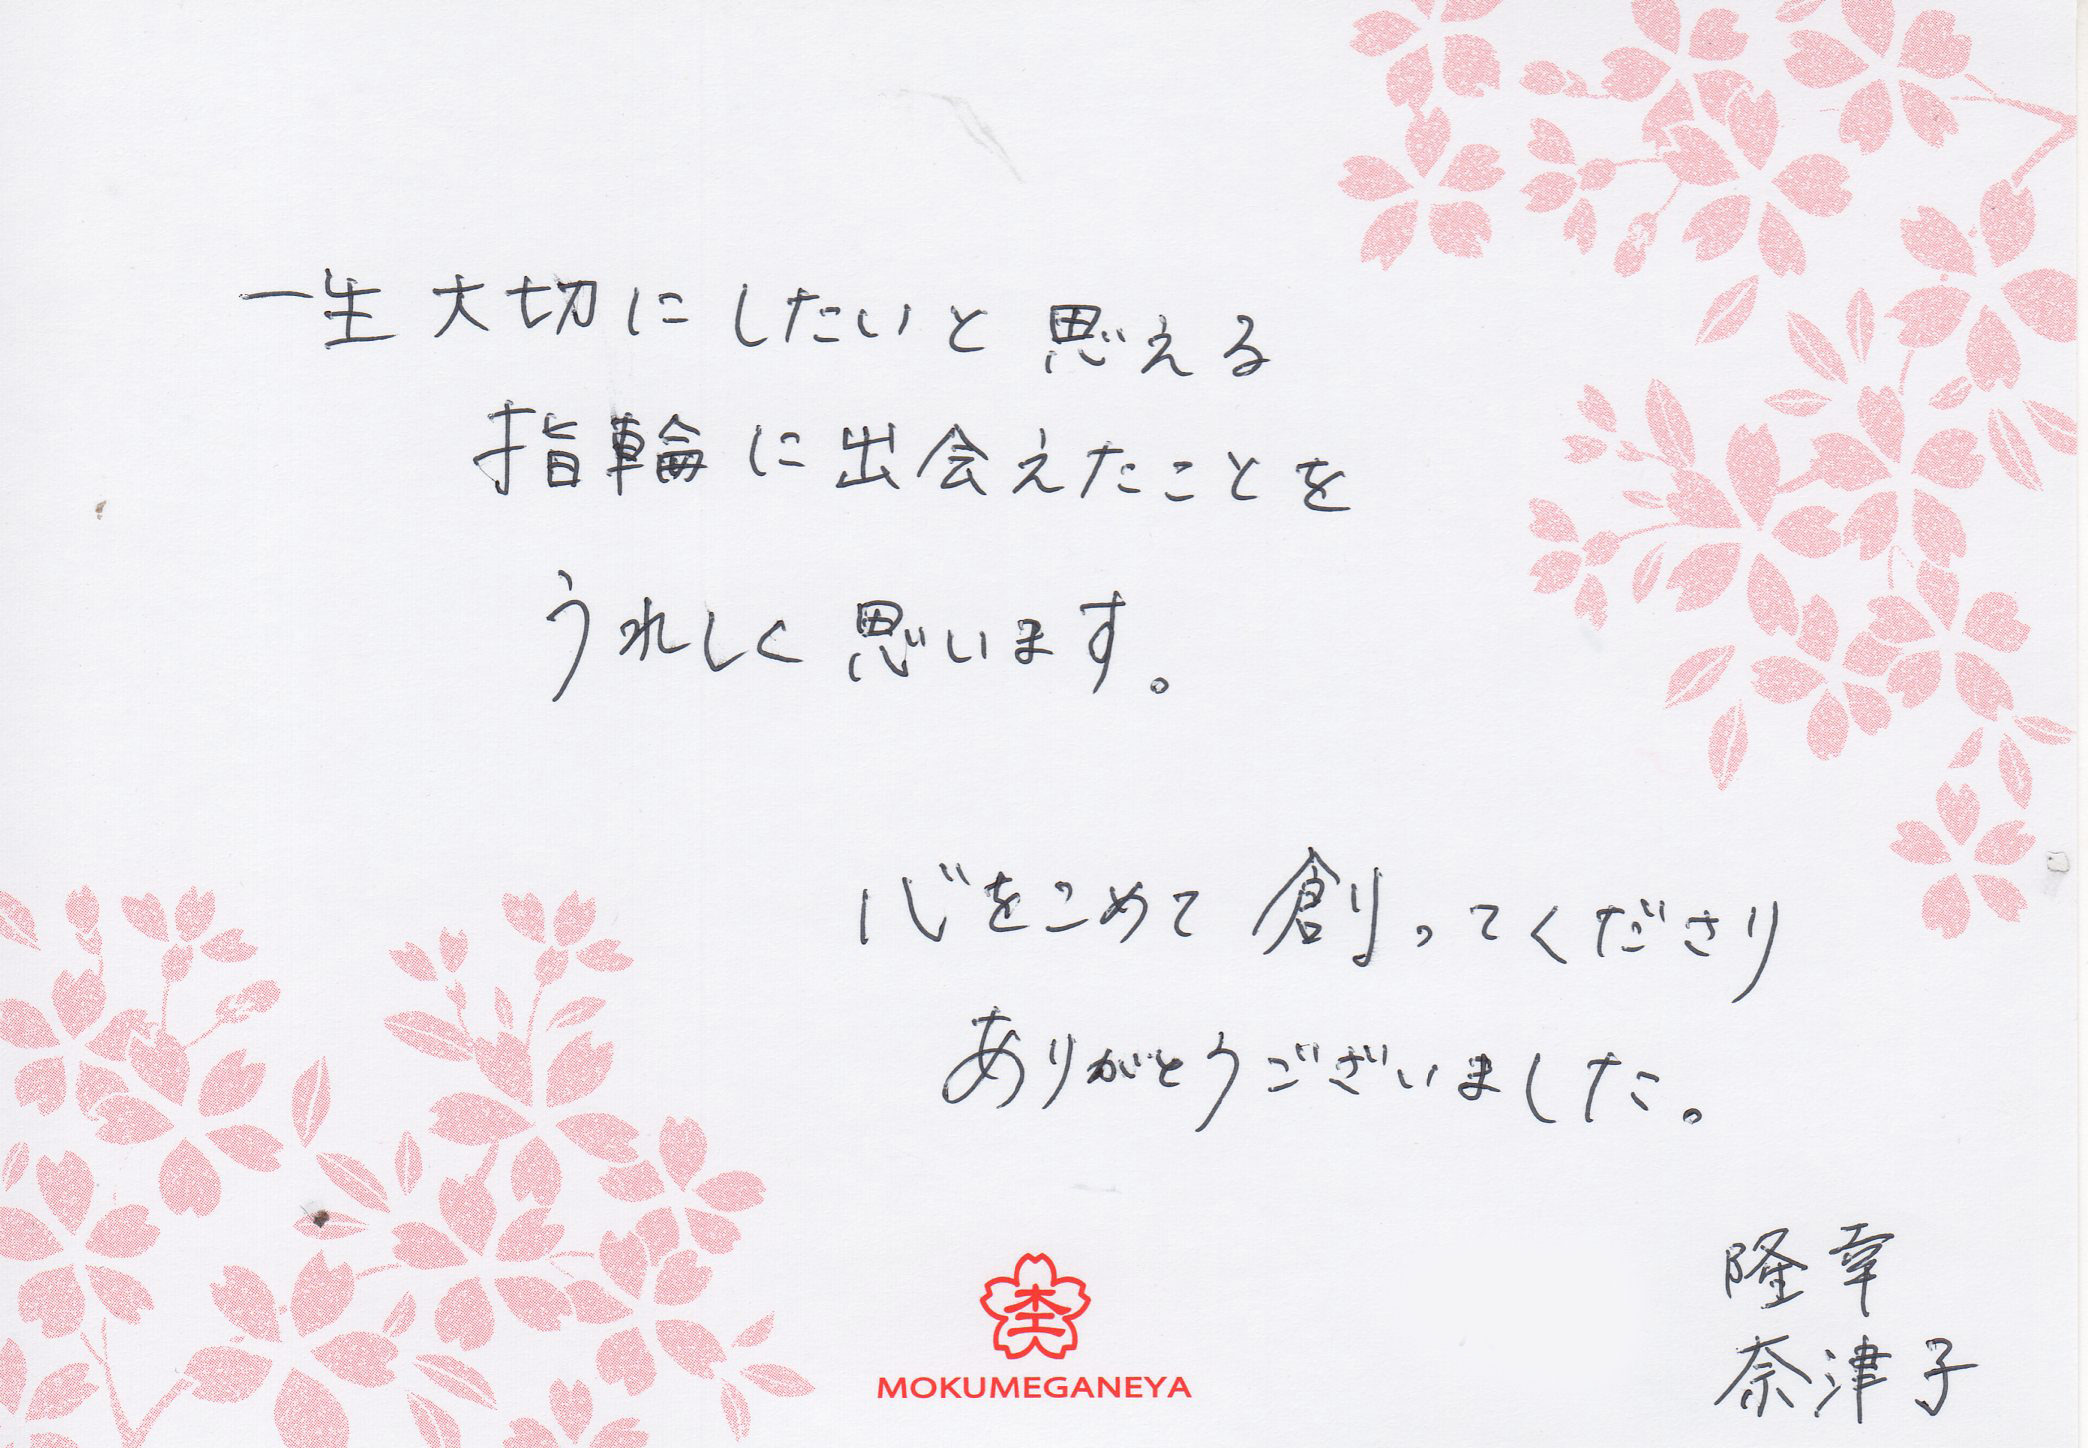 一生大切にしたいと思える
指輪に出会えたことを
うれしく思います。
心をこめて創ってくださり
ありがとうございました。
隆幸
奈津子
MOKUMEGANEYA